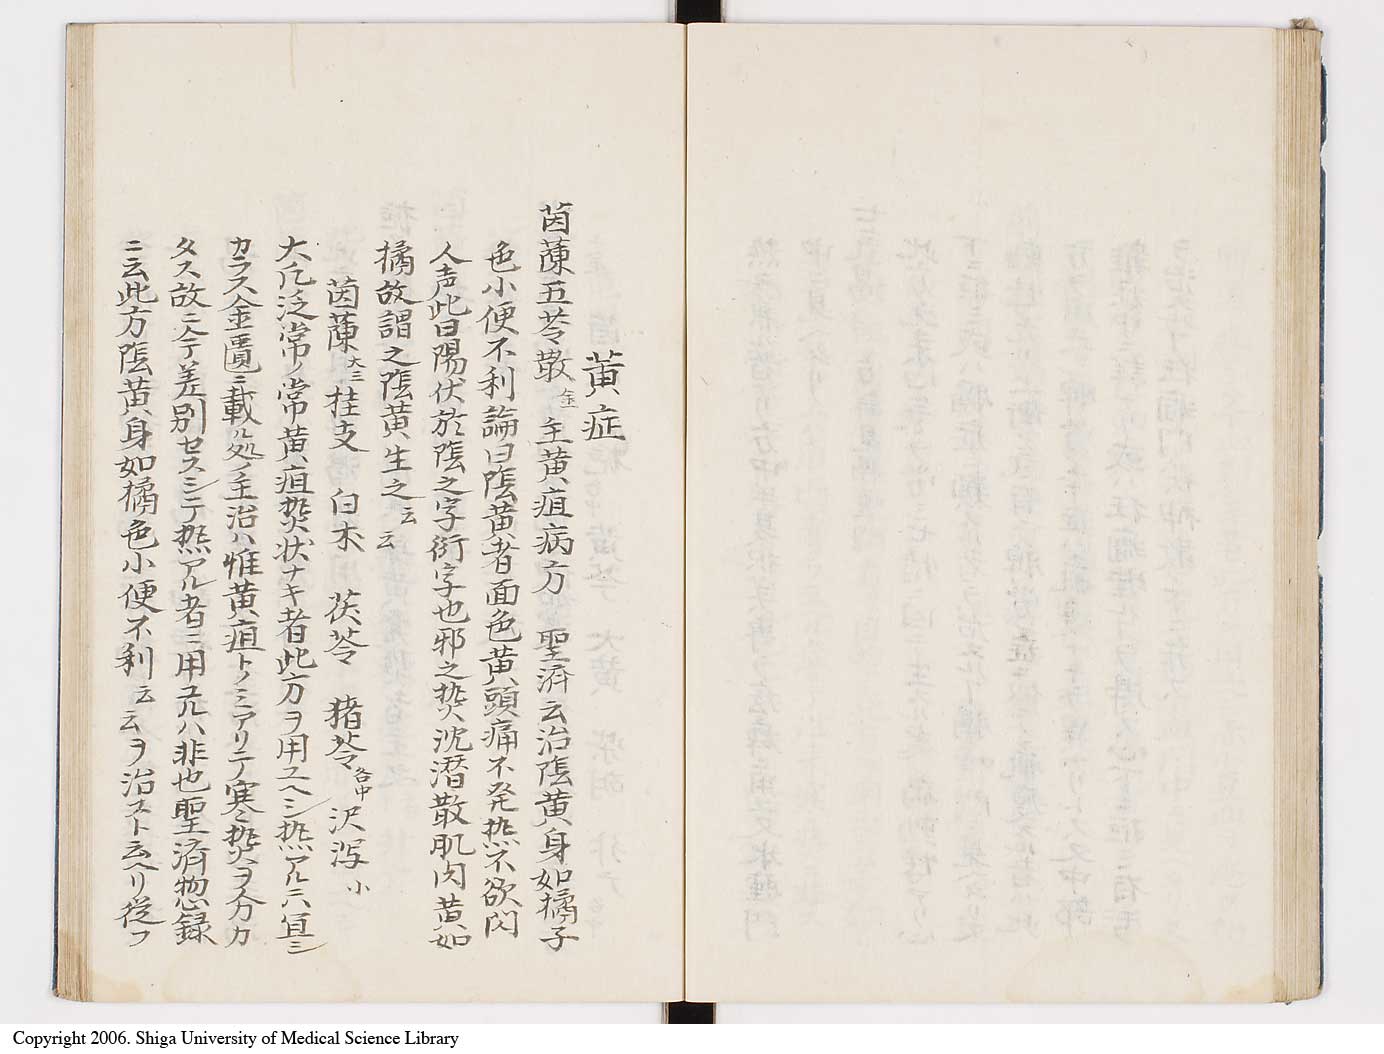 黄症
茵蔯五苓散 金 主黄疸病方 聖済云治陰黄身如橘子
色小便不利論曰陰黄者面色黄頭痛不発熱不欲聞
人声此曰陽伏於陰之字衍字也邪之熱沈潜散肌肉黄如
橘故謂之陰黄生之云云
茵蔯 大三 桂支 白朮 茯苓 猪苓 各中 沢瀉 小
大凡泛常ノ常黄疸熱状ナキ者此方ヲ用ユヘシ熱アルニハ宜シ
カラス金匱ニ載ル処ノ主治ハ惟黄疸トノミアリテ寒熱ヲ分カ
タス故ニ今差別セスシテ熱アル者ニ用ユルハ非也聖済惣録
ニ云此方陰黄身如橘色小便不利云云ヲ治スト云ヘリ従フ
Copyright 2006. Shiga University of Medical Science Library